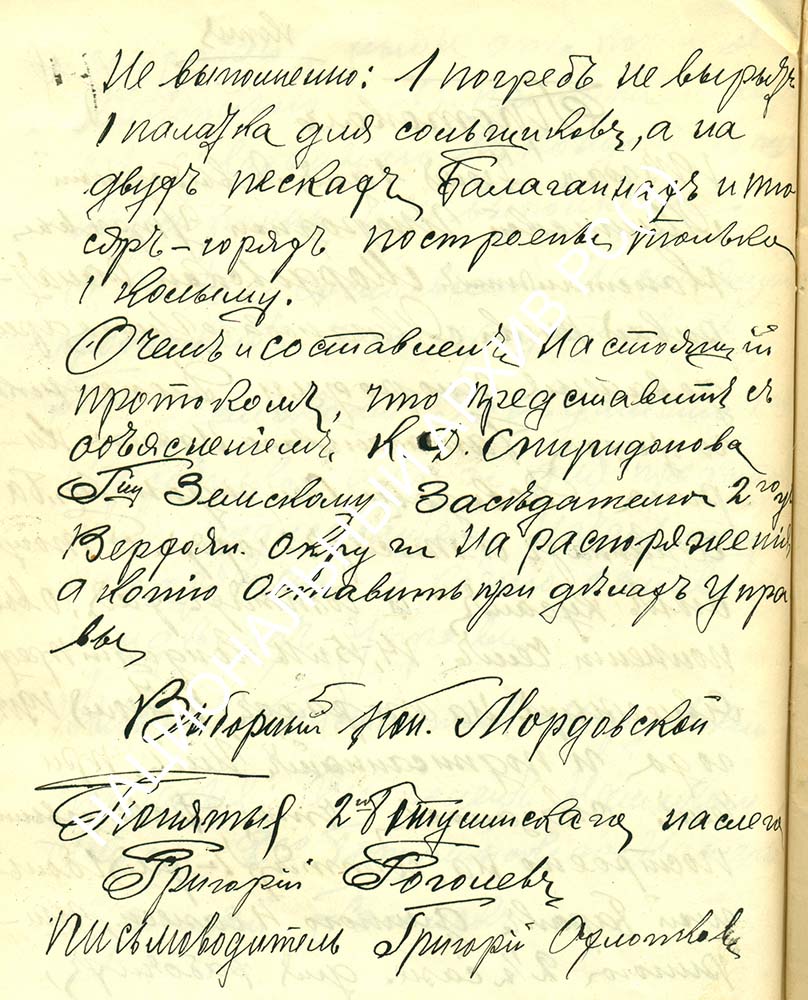 Не выполненно: 1 погребъ не вырытъ
1 палатка для сольщиковъ, а на
двухъ пескахъ Балаганнахъ и
горядъ построенъ только
1 колыму.
Очемъ и составленъ настоящий
протоколъ, что представить съ
объяснениемъ К. Д. Спиридонова
Гну Земскому Заседателю 2го уч
Верхоян. округи на распоряжения
а копию оставить при делахъ Упра
вы
Виборный Кон. Мордовской
Понятыя 2го наслега
Григорий Гоголевъ
Письмоводитель Григорий
НАЦИОНАЛЬНЫЙ АРХИВ РС(Я)